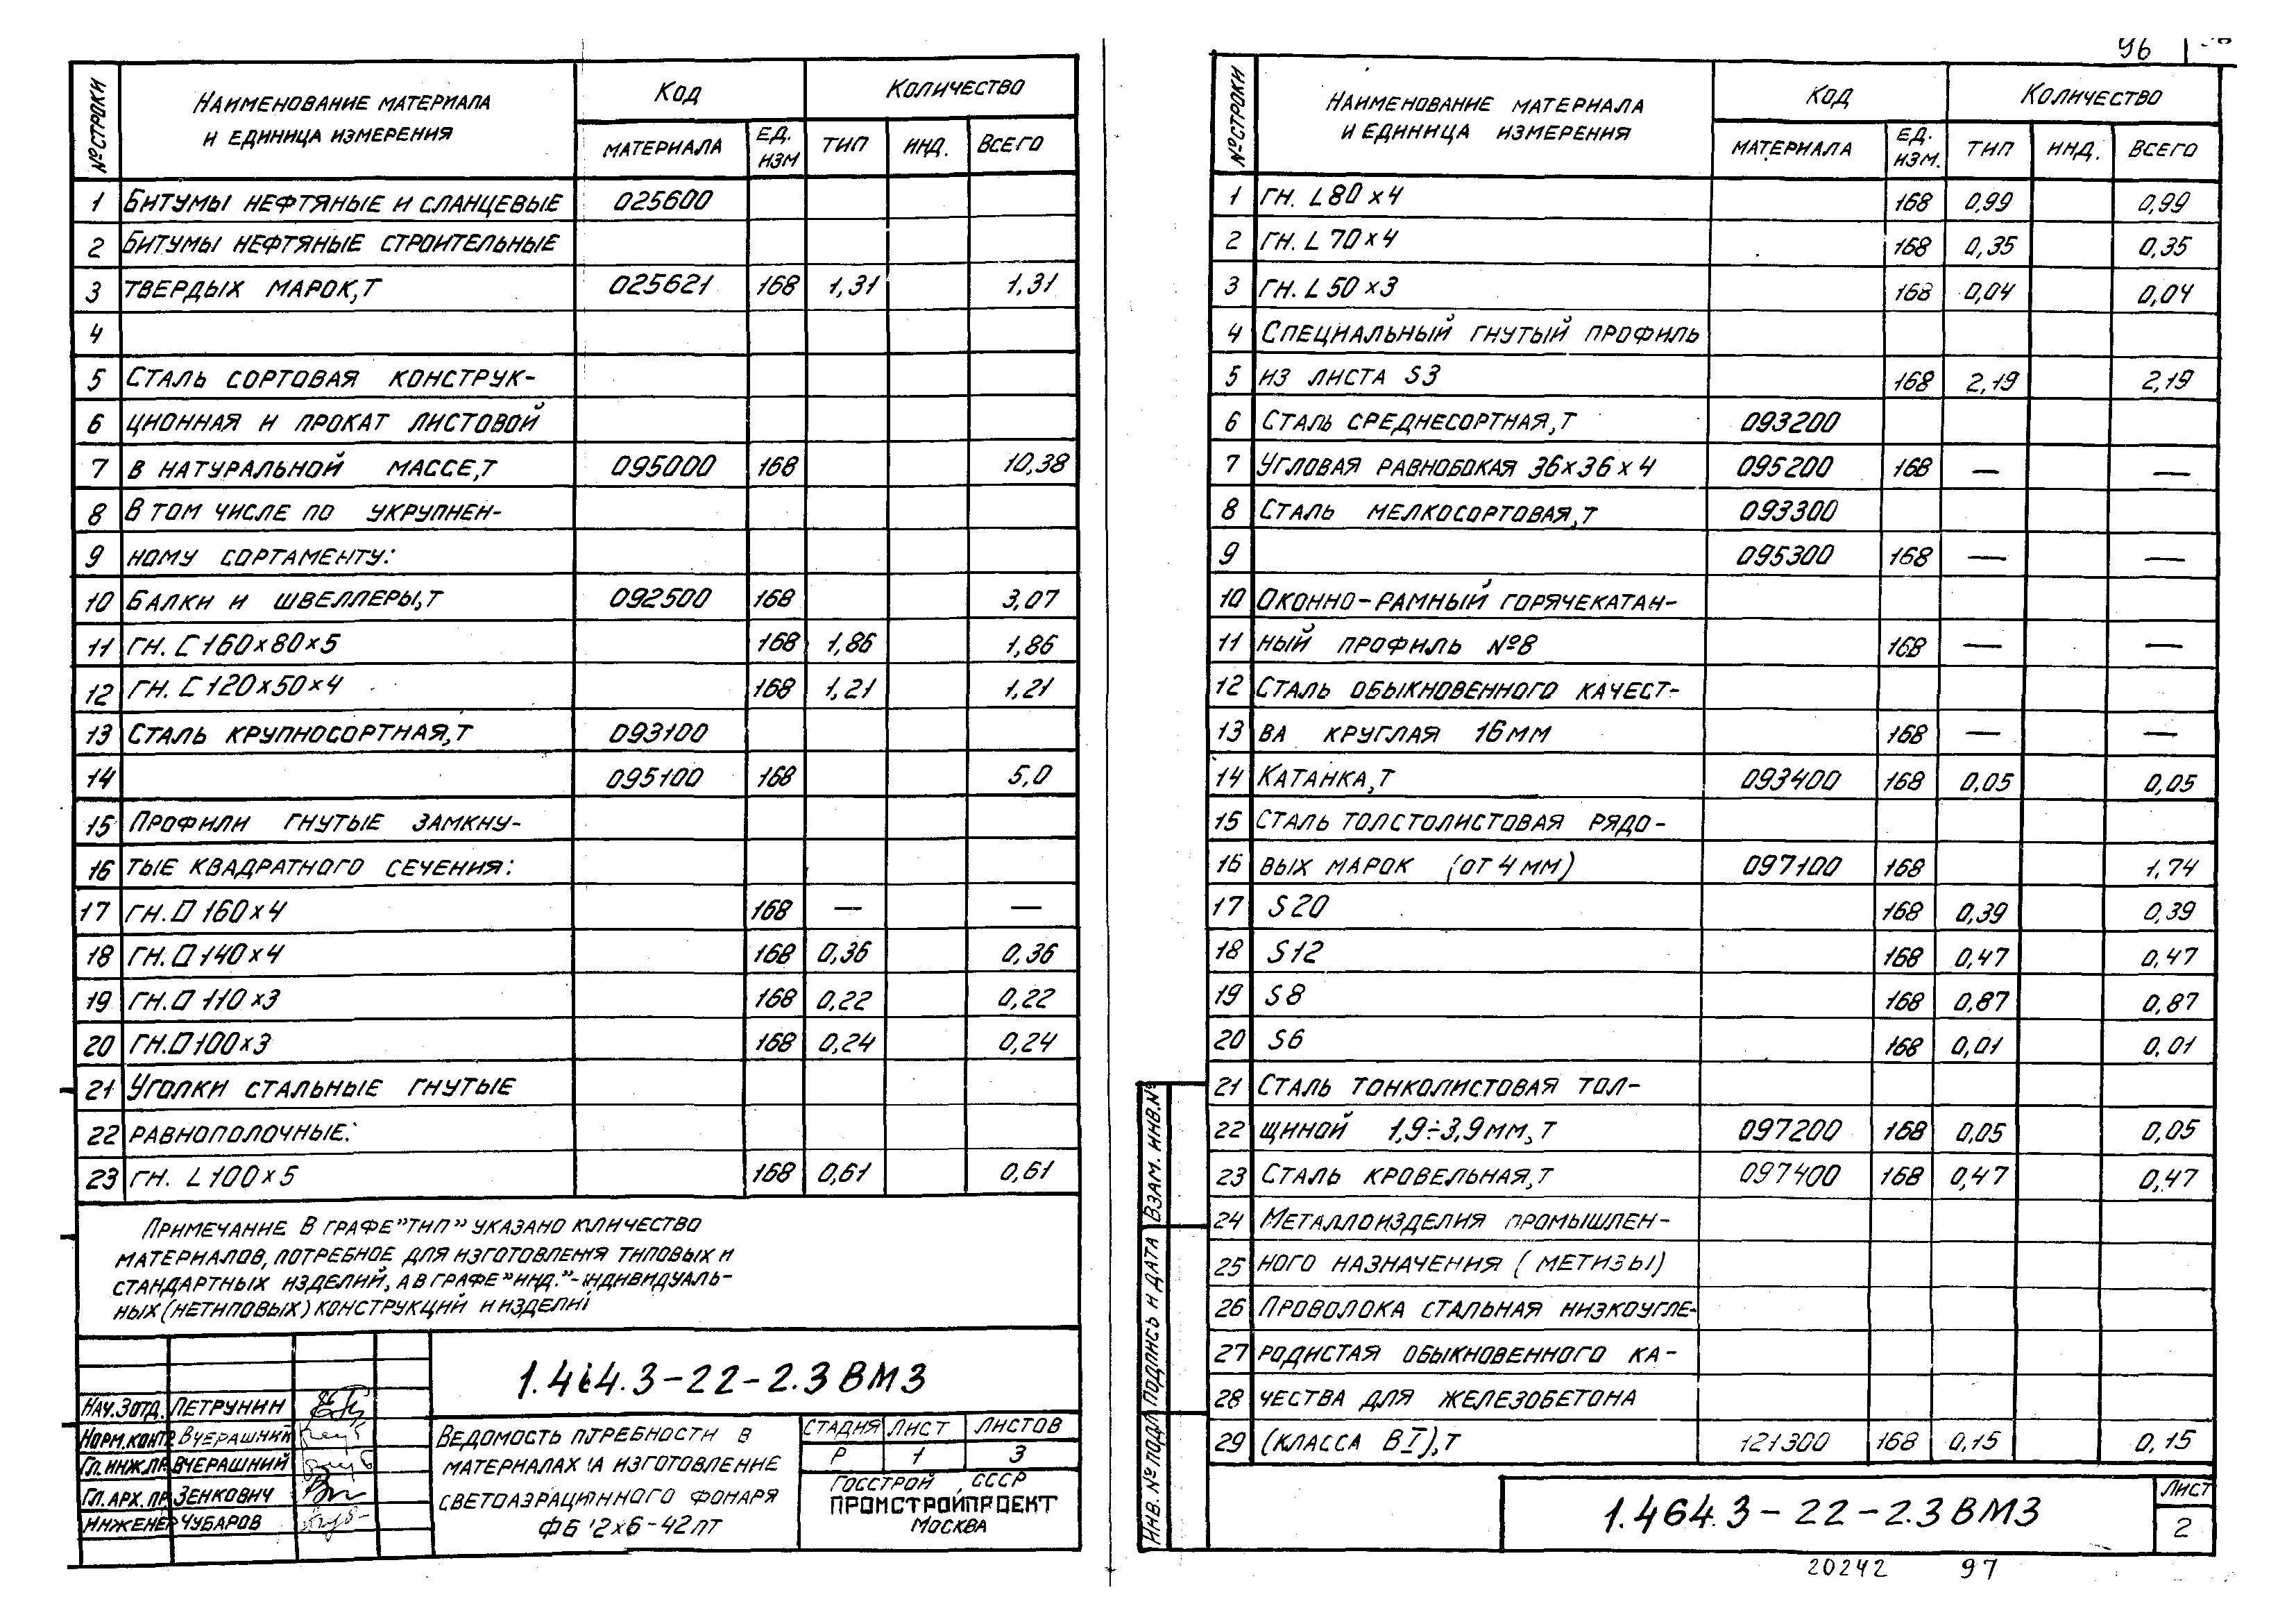 № СТРОКИ
НАИМЕНОВАНИЕ МАТЕРИАЛА
И ЕДИНИЦА ИЗМЕРЕНИЯ
КОД
КОЛИЧЕСТВО
МАТЕРИАЛА ЕД. ИЗМ ТИП ИНД. ВСЕГО
1 БИТУМЫ НЕФТЯНЫЕ И СЛАНЦЕВЫЕ 025600
2 БИТУМЫ НЕФТЯНЫЕ СТРОИТЕЛЬНЫЕ
3 ТВЕРДЫХ МАРОК, Т 025621 168 1,31 1,31
4
5 СТАЛЬ СОРТОВАЯ КОНСТРУК-
6 ЦИОННАЯ И ПРОКАТ ЛИСТОВОЙ
7 В НАТУРАЛЬНОЙ МАССЕ, Т 095000 168 10,38
8 В ТОМ ЧИСЛЕ ПО УКРУПНЕН-
9 НОМУ СОРТАМЕНТУ:
10 БАЛКИ И ШВЕЛЛЕРЫ, Т 092500 168 3,07
11 ГН. С 160×80×5 168 1,86 1,86
12 ГН. С 120×50×4 168 1,21 1,21
13 СТАЛЬ КРУПНОСОРТНАЯ, Т 093100
14 095100 168 5,0
15 ПРОФИЛИ ГНУТЫЕ ЗАМКНУ-
16 ТЫЕ КВАДРАТНОГО СЕЧЕНИЯ:
17 ГН. □ 160×4 168 — —
18 ГН. □ 140×4 168 0,36 0,36
19 ГН. □ 110×3 168 0,22 0,22
20 ГН. □ 100×3 168 0,24 0,24
21 УГОЛКИ СТАЛЬНЫЕ ГНУТЫЕ
22 РАВНОПОЛОЧНЫЕ:
23 ГН. L 100×5 168 0,61 0,61
ПРИМЕЧАНИЕ В ГРАФЕ "ТИП" УКАЗАНО КОЛИЧЕСТВО
МАТЕРИАЛОВ, ПОТРЕБНОЕ ДЛЯ ИЗГОТОВЛЕНИЯ ТИПОВЫХ И
СТАНДАРТНЫХ ИЗДЕЛИЙ, А В ГРАФЕ "ИНД." - ИНДИВИДУАЛЬ-
НЫХ (НЕТИПОВЫХ) КОНСТРУКЦИЙ И ИЗДЕЛИЙ
НАЧ. ЗОТД. ПЕТРУНИН
НОРМ. КОНТР ВЧЕРАШНИЙ
ГЛ. ИНЖ. ПР. ВЧЕРАШНИЙ
ГЛ. АРХ. ПР. ЗЕНКОВИЧ
ИНЖЕНЕР ЧУБАРОВ
1.464.3-22-2.3 ВМ3
ВЕДОМОСТЬ ПОТРЕБНОСТИ В
МАТЕРИАЛАХ НА ИЗГОТОВЛЕНИЕ
СВЕТОАЭРАЦИОННОГО ФОНАРЯ
ФБ 12×6-42ПТ
СТАДИЯ ЛИСТ ЛИСТОВ
Р 1 3
ГОССТРОЙ СССР
ПРОМСТРОЙПРОЕКТ
МОСКВА
96
№ СТРОКИ
НАИМЕНОВАНИЕ МАТЕРИАЛА
И ЕДИНИЦА ИЗМЕРЕНИЯ
КОД
КОЛИЧЕСТВО
МАТЕРИАЛА ЕД. ИЗМ. ТИП ИНД. ВСЕГО
1 ГН. L 80×4 168 0,99 0,99
2 ГН. L 70×4 168 0,35 0,35
3 ГН. L 50×3 168 0,04 0,04
4 СПЕЦИАЛЬНЫЙ ГНУТЫЙ ПРОФИЛЬ
5 ИЗ ЛИСТА S3 168 2,19 2,19
6 СТАЛЬ СРЕДНЕСОРТНАЯ, Т 093200
7 УГЛОВАЯ РАВНОБОКАЯ 36×36×4 095200 168 — —
8 СТАЛЬ МЕЛКОСОРТОВАЯ, Т 093300
9 095300 168 — —
10 ОКОННО-РАМНЫЙ ГОРЯЧЕКАТАН-
11 НЫЙ ПРОФИЛЬ №8 168 — —
12 СТАЛЬ ОБЫКНОВЕННОГО КАЧЕСТ-
13 ВА КРУГЛАЯ 16 ММ 168 — —
14 КАТАНКА, Т 093400 168 0,05 0,05
15 СТАЛЬ ТОЛСТОЛИСТОВАЯ РЯДО-
16 ВЫХ МАРОК (ОТ 4 ММ) 097100 168 1,74
17 S20 168 0,39 0,39
18 S12 168 0,47 0,47
19 S8 168 0,87 0,87
20 S6 168 0,01 0,01
21 СТАЛЬ ТОНКОЛИСТОВАЯ ТОЛ-
22 ЩИНОЙ 1,9÷3,9 ММ, Т 097200 168 0,05 0,05
23 СТАЛЬ КРОВЕЛЬНАЯ, Т 097400 168 0,47 0,47
24 МЕТАЛЛОИЗДЕЛИЯ ПРОМЫШЛЕН-
25 НОГО НАЗНАЧЕНИЯ (МЕТИЗЫ)
26 ПРОВОЛОКА СТАЛЬНАЯ НИЗКОУГЛЕ-
27 РОДИСТАЯ ОБЫКНОВЕННОГО КА-
28 ЧЕСТВА ДЛЯ ЖЕЛЕЗОБЕТОНА
29 (КЛАССА ВI), Т 121300 168 0,15 0,15
ИНВ. № ПОДЛ ПОДПИСЬ И ДАТА ВЗАМ. ИНВ. №
1.464.3-22-2.3 ВМ3
ЛИСТ
2
20242 97